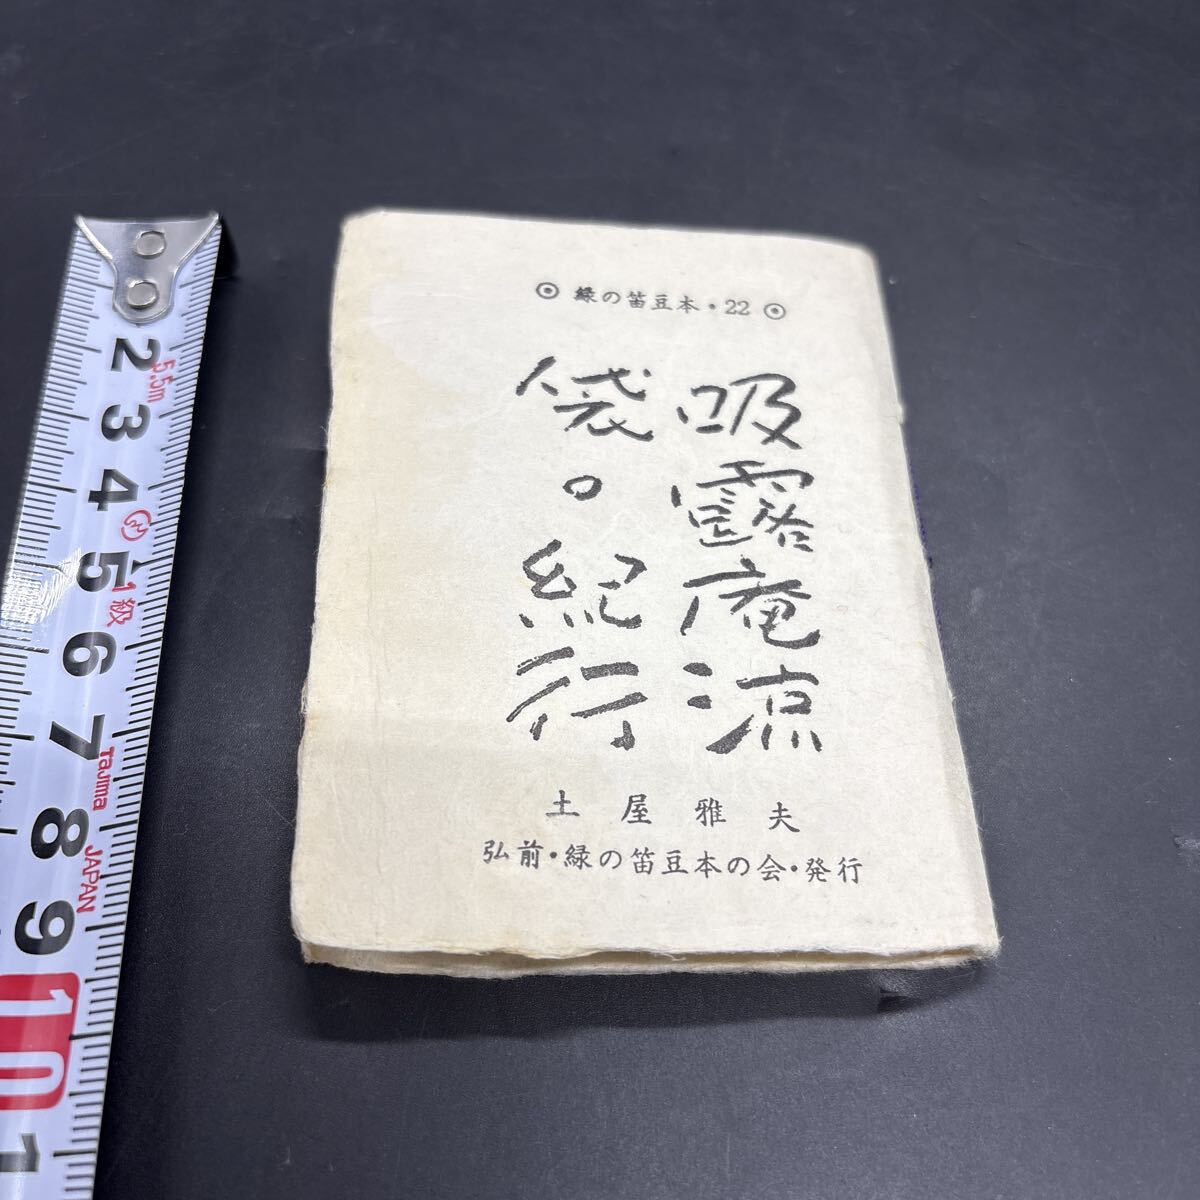 ◉ 緑の笛豆本・22 ◉
吸露庵涼
袋。紀行
土屋雅夫
弘前・緑の笛豆本の会・発行
2
3
4
5
6
7
8
9
10
1
5.5m
1級
Tajima
JAPAN